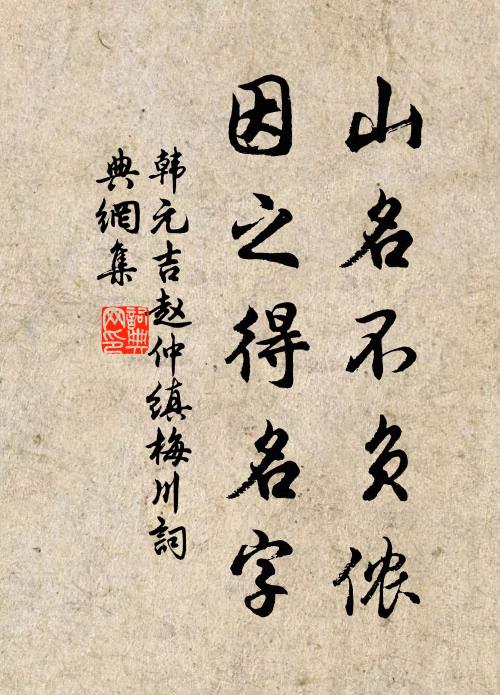 山名不负侬
因之得名字
韩元吉赵仲缜梅川詞
典網集
詞典网印